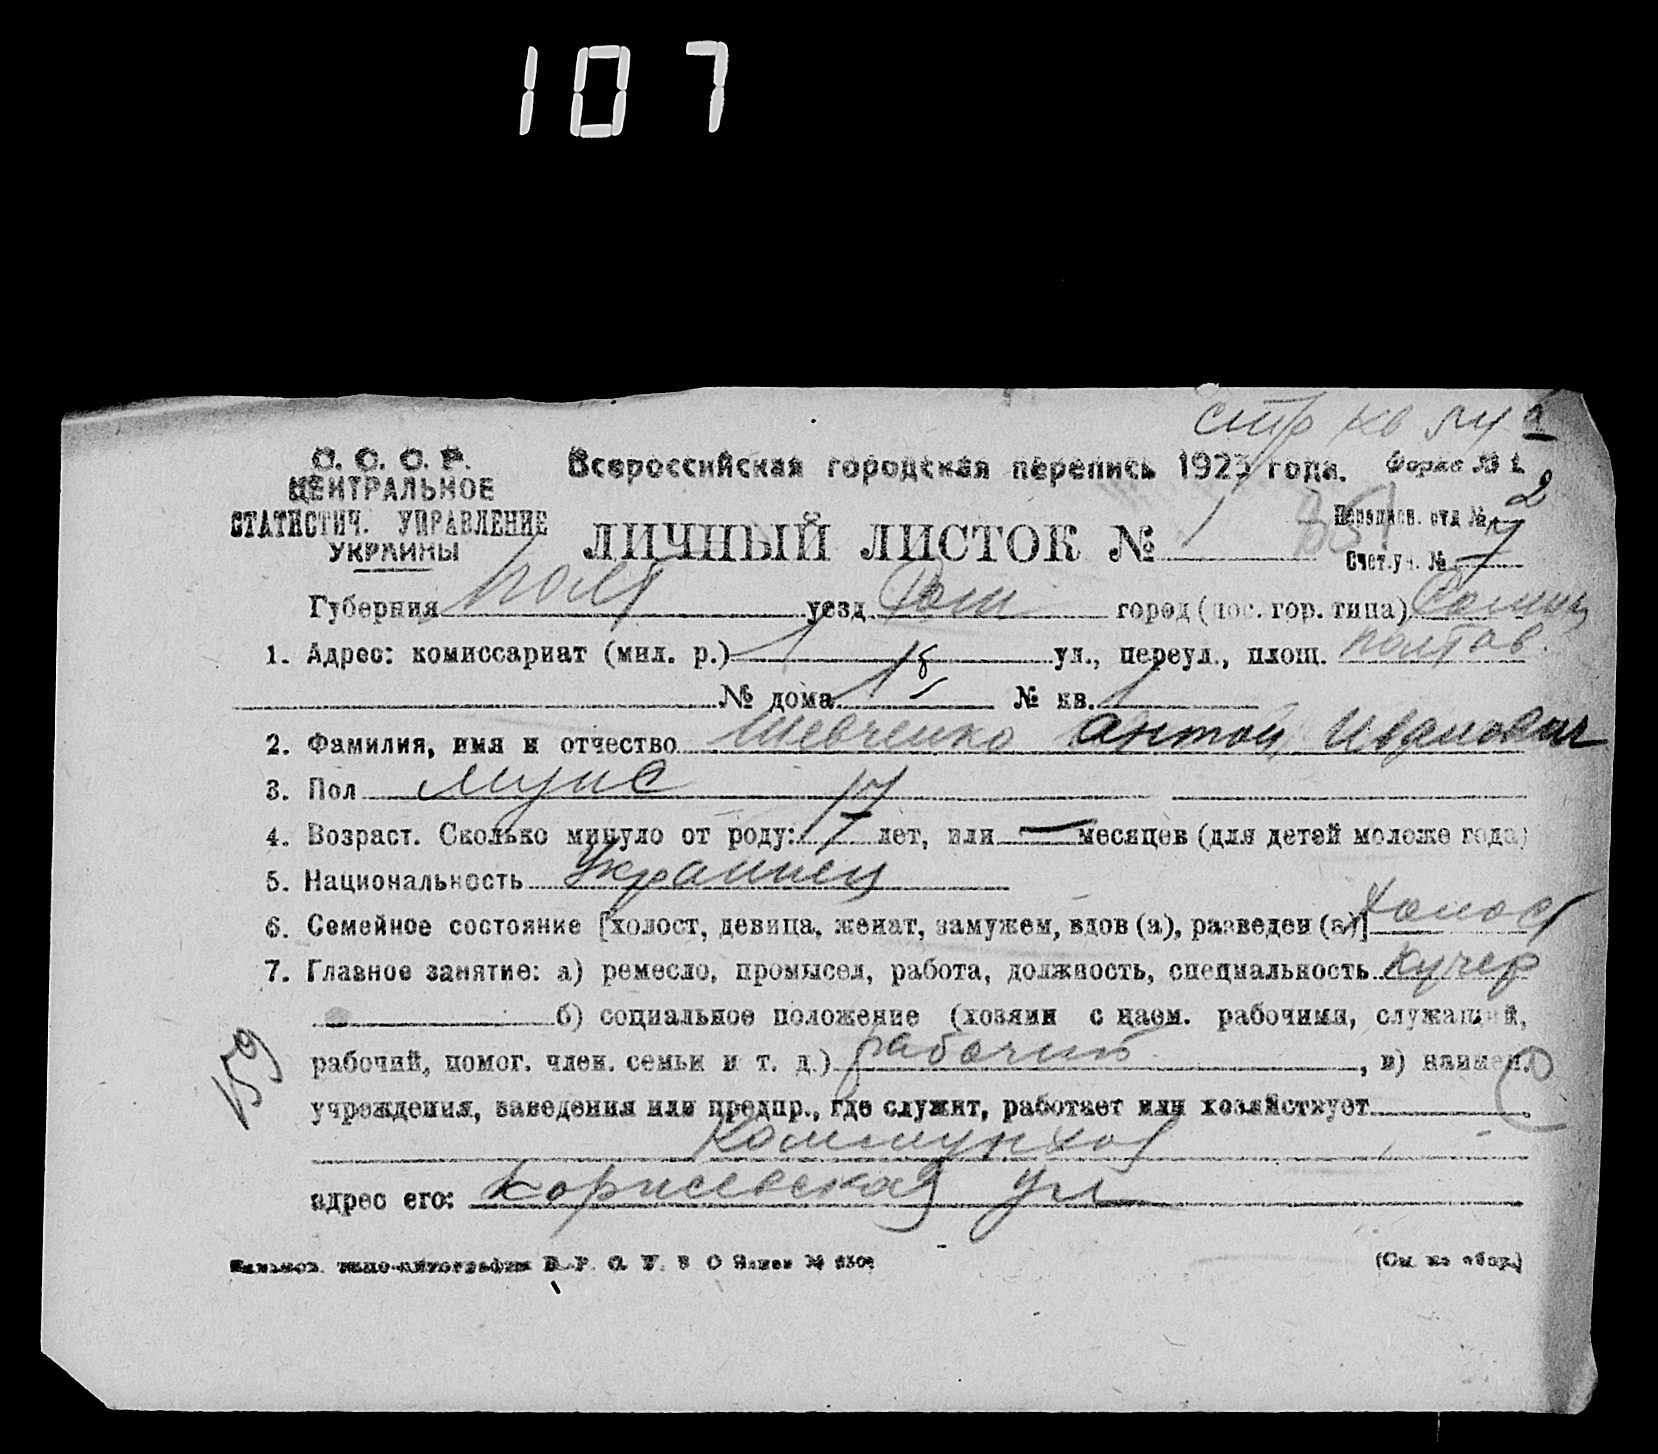 107
С. С. С. Р.
ЦЕНТРАЛЬНОЕ
СТАТИСТИЧ. УПРАВЛЕНИЕ
УКРАИНЫ
Всероссийская городская перепись 1923 года. Форма № 1.
ЛИЧНЫЙ ЛИСТОК № 1
Переписн. отд. № 2
Счет. уч. № 7
Губерния Полт уезд Ром город (пос. гор. типа)
1. Адрес: комиссариат (мил. р.) 1 ул., переул., площ. Полтав.
№ дома № кв. 1
2. Фамилия, имя и отчество Шевченко Антон Иванович
3. Пол мужс
4. Возраст. Сколько минуло от роду: лет, или — месяцев (для детей моложе года)
5. Национальность Украинец
6. Семейное состояние [холост, девица, женат, замужем, вдов (а), разведен (а)] холост
7. Главное занятие: а) ремесло, промысел, работа, должность, специальность кучер
б) социальное положение (хозяин с наем. рабочими, служащий,
рабочий, помог. член. семьи и т. д.) рабочий, в) наимен.
учреждения, заведения или предпр., где служит, работает или хозяйствует
Коммунхоз
адрес его: ул
159
(См. на обор.)